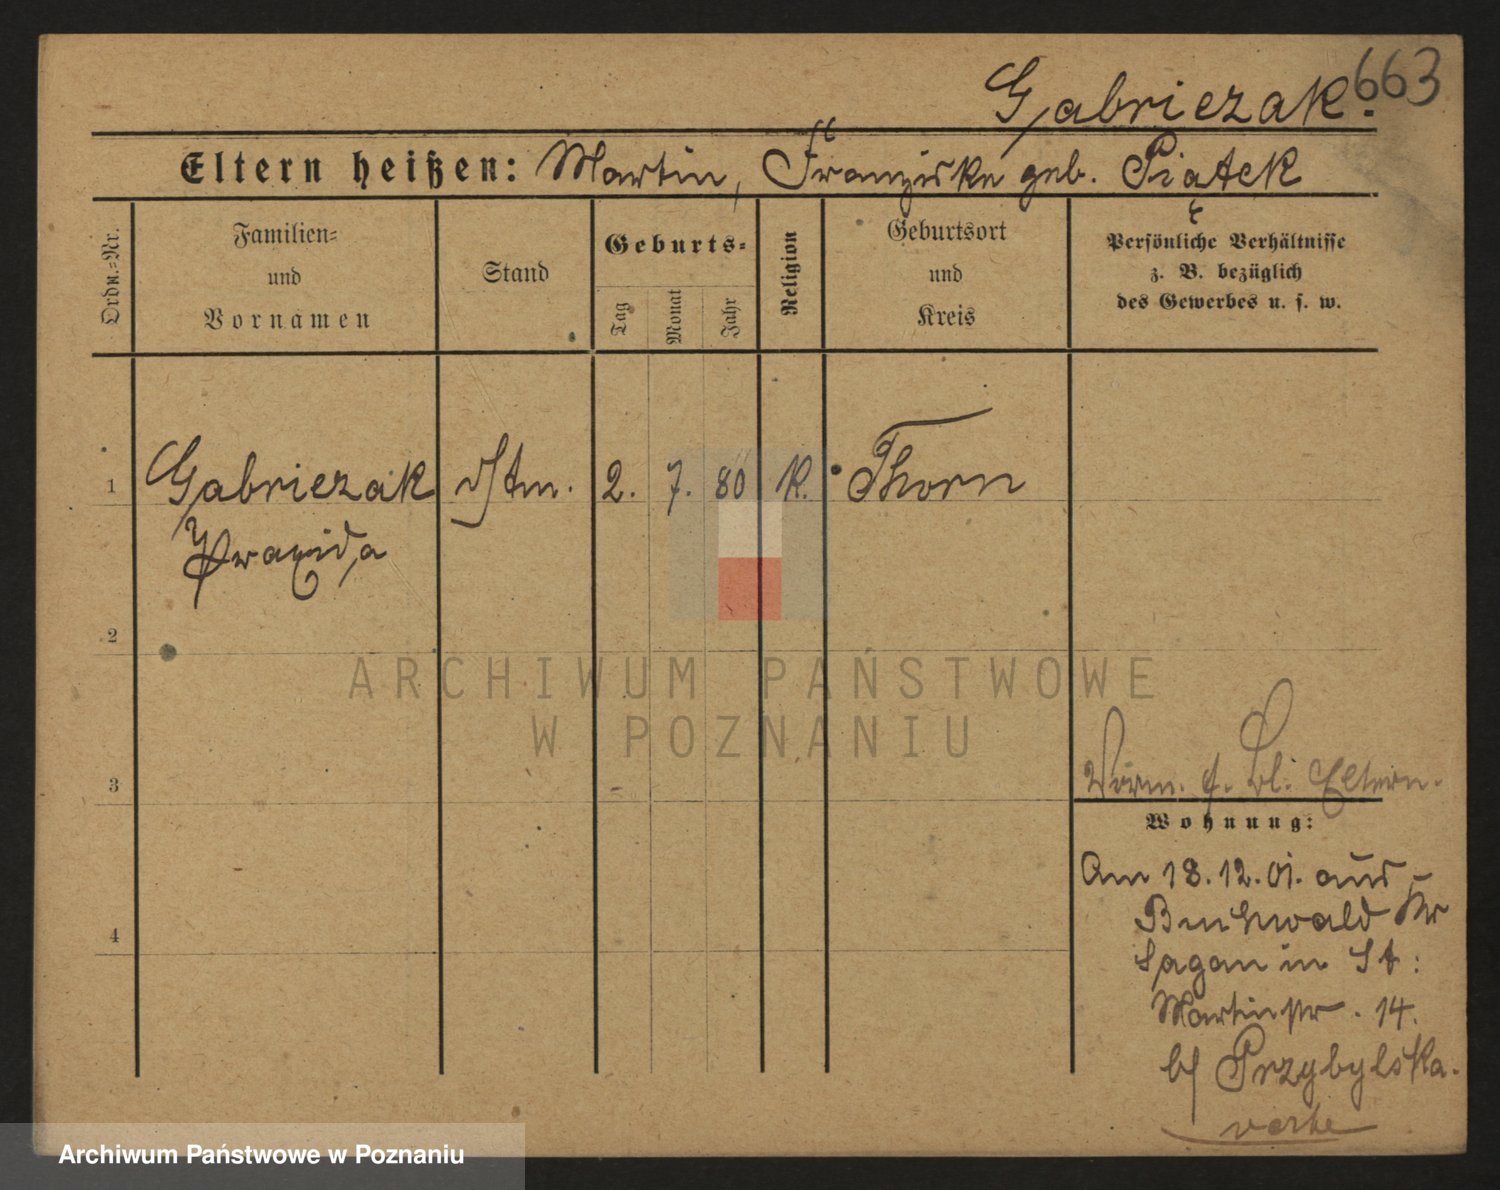 663
Gabriezak.
Eltern heißen: Martin, Franziska geb. Piątek
Ordn.-Nr.
Familien-
und
Vornamen
Stand
Geburts-
Tag
Monat
Jahr
Religion
Geburtsort
und
Kreis
Persönliche Verhältnisse
z. B. bezüglich
des Gewerbes u. s. w.
1 Gabriezak 2. 7. 80 K. Thorn
2
3
4
Eltern.
Wohnung:
Am 18.12.01. aus
Buchwald Kr
Sagan in St:
Martinstr. 14.
b/ Przybylska.
ARCHIWUM PAŃSTWOWE
W POZNANIU
Archiwum Państwowe w Poznaniu